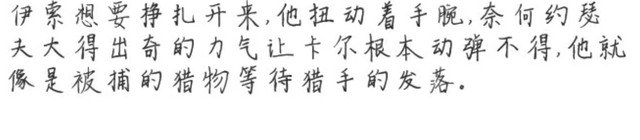 伊索想要挣扎开来,他扭动着手腕,奈何约瑟
夫大得出奇的力气让卡尔根本动弹不得,他就
像是被捕的猎物等待猎手的发落。